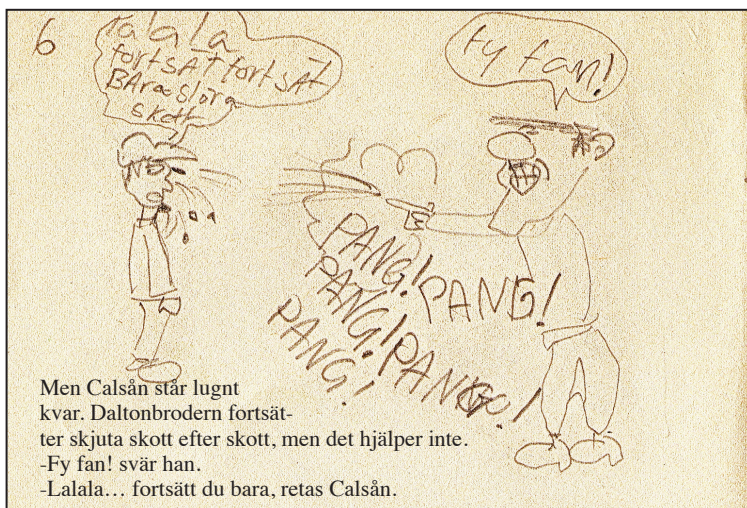 6
lalala
fortsÄT fortsÄT
BAra
skott
fy fan!
PANG! PANG!
PANG! PANG!
PANG!
Men Calsån står lugnt
kvar. Daltonbrodern fortsät-
ter skjuta skott efter skott, men det hjälper inte.
-Fy fan! svär han.
-Lalala… fortsätt du bara, retas Calsån.